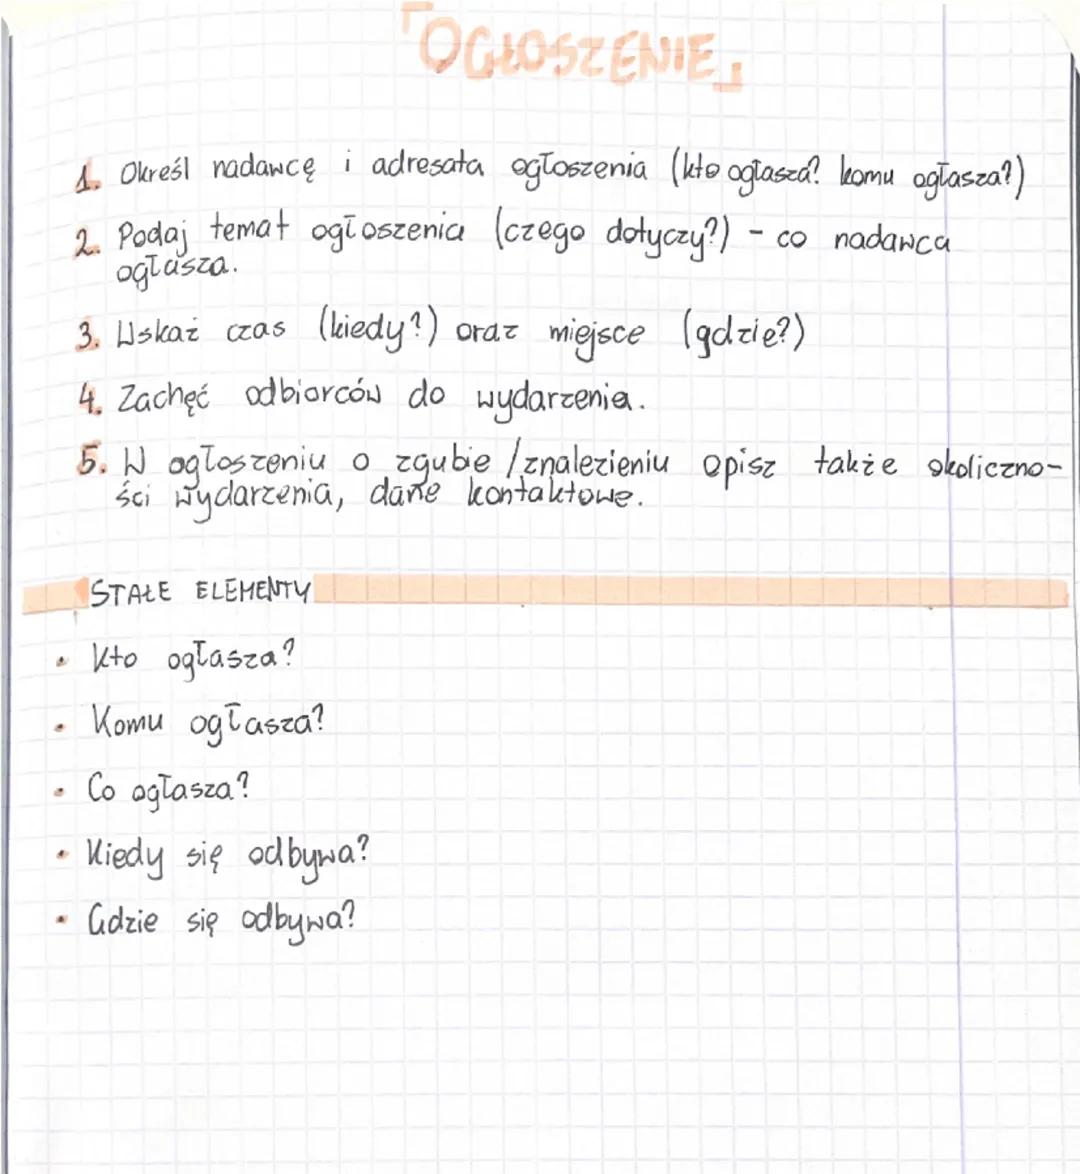 「OGŁOSZENIE」
1. Określ nadawcę i adresata ogłoszenia (kto ogłasza? komu ogłasza?)
2. Podaj temat ogłoszenia (czego dotyczy?) - co nadawca
ogłasza.
3. Wskaż czas (kiedy?) oraz miejsce (gdzie?)
4. Zachęć odbiorców do wydarzenia.
5. W ogłoszeniu o zgubie/znalezieniu opisz także okoliczno-
ści wydarzenia, dane kontaktowe.
STAŁE ELEMENTY
• Kto ogłasza?
• Komu ogłasza?
• Co ogłasza?
• Kiedy się odbywa?
• Gdzie się odbywa?